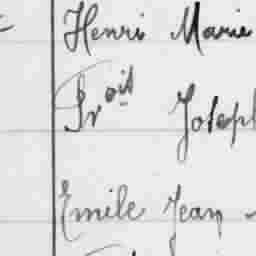 Henri Marie
Joseph
Emile Jean